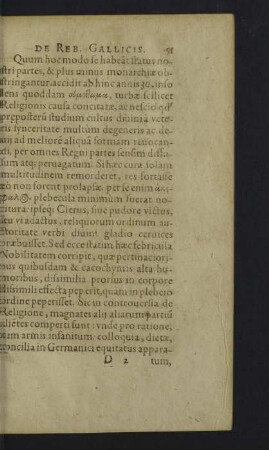 DE REB. GALLICIS. 51
Quum hoc modo se habeāt status no-
stri partes, & plus minus monarchiæ ob-
stringantur, accidit ab hinc annis 30. inso
lens quoddam turbæ scilicet
Religionis causa concitatæ, ac nescio qđ
præposterū studium cultus divini a vete-
ris synceritate multùm degeneris ac de-
ad meliorē aliquā formam revocan-
di, per omnes Regni partes sensim dissu-
sum atq; pervagatum. Si hæc cura solam
multitudinem remorderet, res fortasse
eò non forent prolapsæ. per se enim
plebecula minimùm fuerat no-
citura: ipseq; Clerus, sive pudore victus,
seu vi adactus, reliquorum ordinum au-
ctoritate verbi divini gladio cervices
præbuisset. Sed ecce statim hæc febricula
Nobilitatem corripit, quæ pertinaciori-
bus quibusdam & cacochymis alta hu-
moribus, dissimilia prorsus in corpore
dissimili effecta peperit, quàm in plebeio
ordine peperisset. Sic in controversia de
Religione, magnates alij aliarum partiū
aliētes comperti sunt: vnde pro ratione,
etim armis insanitum: colloquia, dietæ,
concilia in Germanici equitatus appara-
D 2 tum,